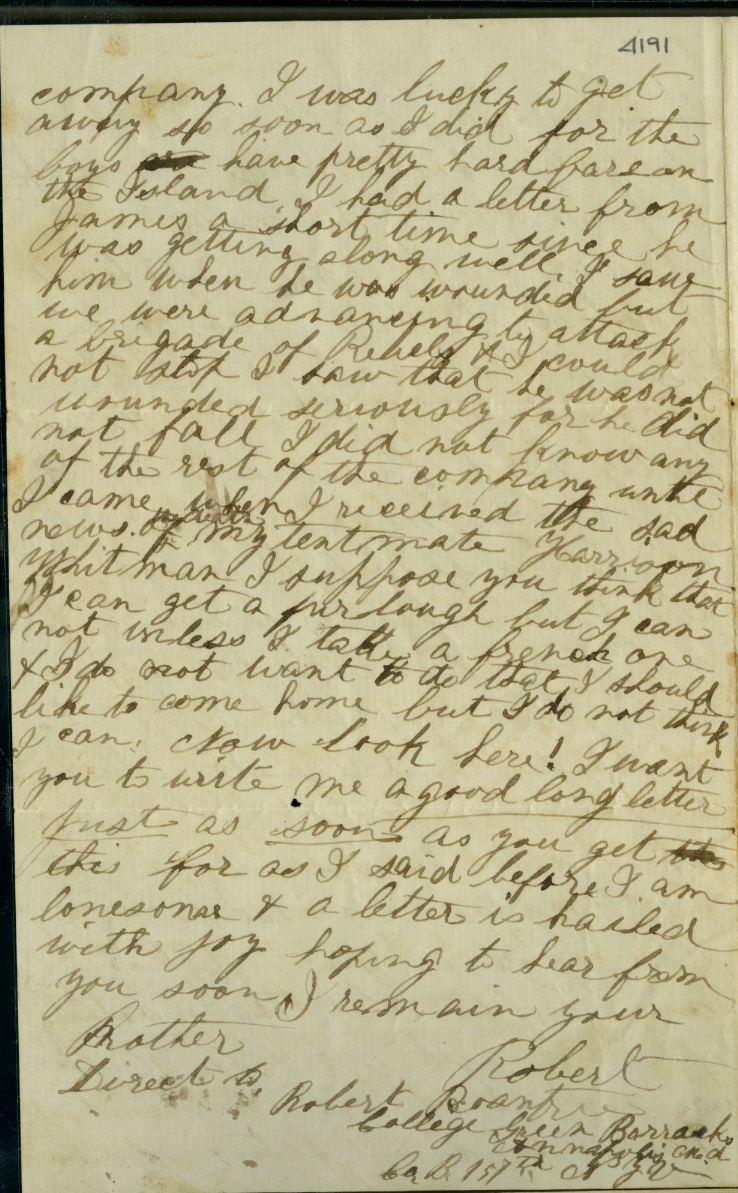 4191
company. I was lucky to get
away so soon as I did for the
boys have pretty hard fare on
the Island, I had a letter from
James a short time since he
was getting along well, I saw
him when he was wounded but
we were advancing to attack
a brigade of Rebels & I could
not stop I saw that he was not
wounded seriously for he did
not fall, I did not know any
of the rest of the company until
I came when I received the sad
news of my tent mate Harrison
Whitman I suppose you think that
I can get a furlough but I can
not unless I take a french one
& I do not want to do that, I should
like to come home but I do not think
I can, Now look here! I want
you to write me a good long letter
just as soon as you get
this for as I said before I am
lonesome & a letter is hailed
with joy hoping to hear from
you soon, I remain your
Brother
Robert
Direct to,
Robert
College Green Barracks
Annapolis Md
Co B 157th